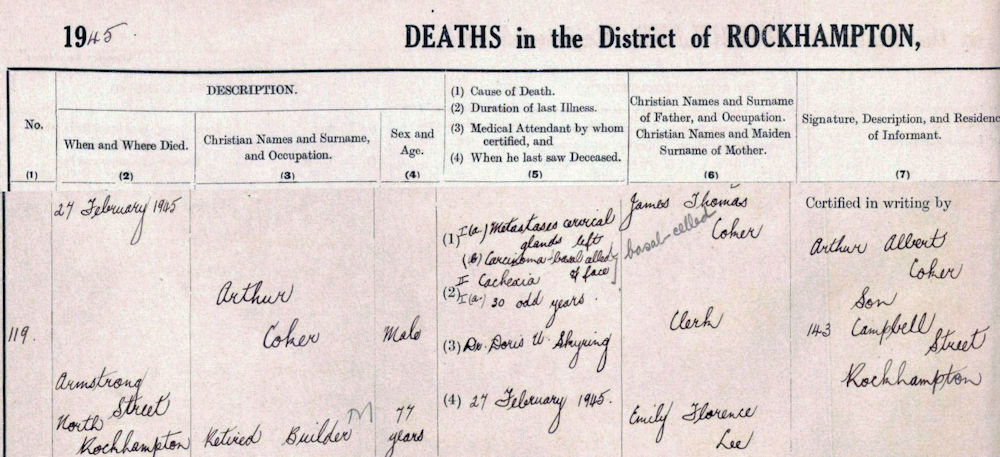 1945.
DEATHS in the District of ROCKHAMPTON,
No.
(1)
DESCRIPTION.
When and Where Died.
(2)
Christian Names and Surname,
and Occupation.
(3)
Sex and
Age.
(4)
(1) Cause of Death.
(2) Duration of last Illness.
(3) Medical Attendant by whom
certified, and
(4) When he last saw Deceased.
(5)
Christian Names and Surname
of Father, and Occupation.
Christian Names and Maiden
Surname of Mother.
(6)
Signature, Description, and Residenc
of Informant.
(7)
119.
27 February 1945
Armstrong
Street
North
Rockhampton
Arthur
Coker
Retired Builder
Male
77
years
(1) I(a) Metastases cervical
glands left
(b) Carcinoma-basal celled
of face
II Cachexia
(2) I(a) 30 odd years.
basal-celled
(3) Dr. Doris U. Skyring
(4) 27 February 1945.
James Thomas
Coker
Clerk
Emily Florence
Lee
Certified in writing by
Arthur Albert
Coker
Son
143 Campbell
Street
Rockhampton